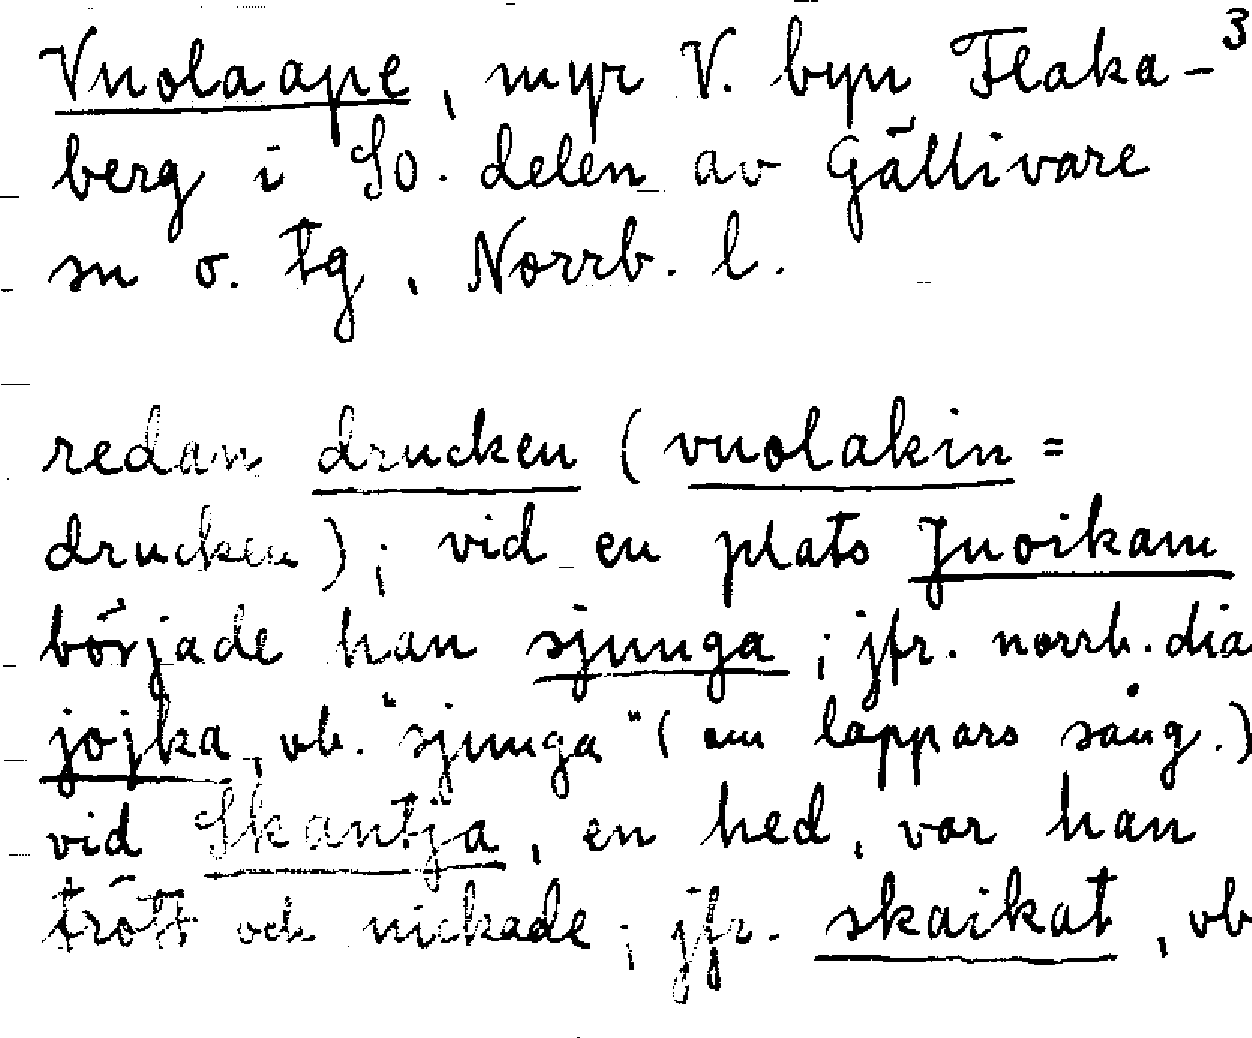 Vuolaape, myr V. byn Flaka-³
berg i SO. delen av Gällivare
sn o. tg, Norrb. l.
redan drucken (vuolakin =
drucken); vid en plats Juoikam
började han sjunga; jfr. norrb. dia
jojka, vb. "sjunga" (om lappars sång.)
vid Skantja, en hed, var han
trött och nickade; jfr. skaikat, vb